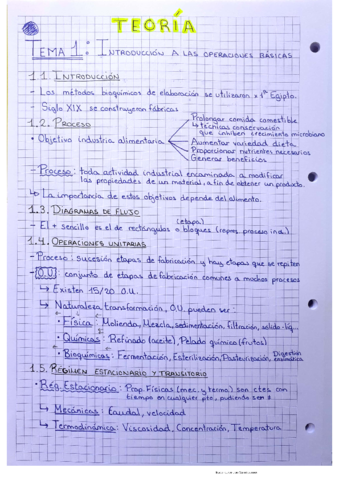 TEORÍA
TEMA 1: INTRODUCCIÓN A LAS OPERACIONES BÁSICAS.
1.1. INTRODUCCIÓN
- Los métodos bioquímicos de elaboración se utilizaron x 1º Egipto.
- Siglo XIX se construyeron fábricas
1.2. PROCESO
Prolongar comida comestible
↳ técnicas conservación
que inhiben crecimiento microbiano
• Objetivo industria alimentaria
Aumentar variedad dieta
Proporcionar nutrientes necesarios
Generar beneficios
- Proceso: toda actividad industrial encaminada a modificar
las propiedades de un material, a fin de obtener un producto.
↳ La importancia de estos objetivos depende del alimento.
1.3. DIAGRAMAS DE FLUJO
(etapa)
- El + sencillo es el de rectángulos o bloques (repres. proceso ind.)
1.4. OPERACIONES UNITARIAS
- Proceso: sucesión etapas de fabricación y hay etapas que se repiten
- O.U: conjunto de etapas de fabricación comunes a muchos procesos
↳ Existen 15/20 O.U.
↳ Naturaleza transformación, O.U. pueden ser:
• Física: Molienda, Mezcla, sedimentación, filtración, sólido-líq...
• Químicas: Refinado (aceite), Pelado químico (frutos)
• Bioquímicas: Fermentación, Esterilización, Pasteurización, Digestión
enzimática
1.5. RÉGIMEN ESTACIONARIO Y TRANSITORIO
• Rég. Estacionario: Prop. Físicas (mec. y termo) son ctes con
tiempo en cualquier pto, pudiendo ser ≠
↳ Mecánicas: Caudal, velocidad
↳ Termodinámica: Viscosidad, Concentración, Temperatura